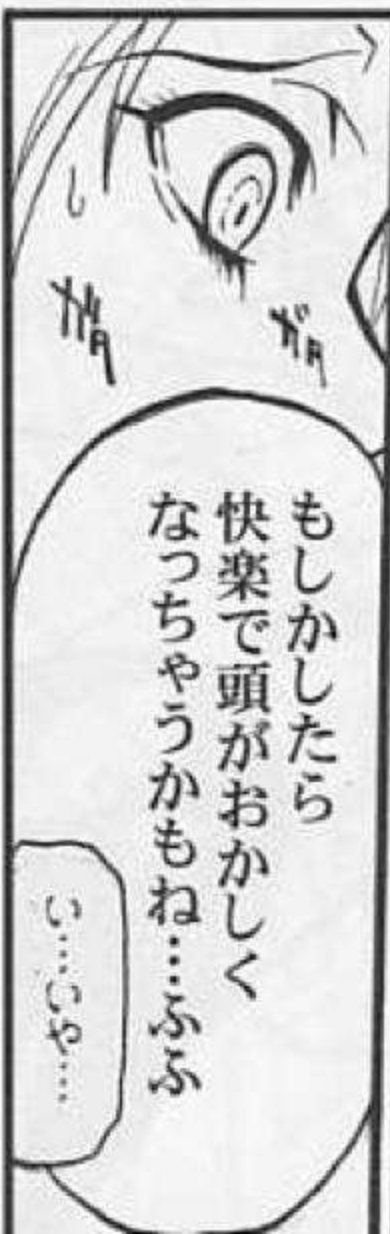 ガタ
ガタ
もしかしたら
快楽で頭がおかしく
なっちゃうかもね…ふふ
い…いや…